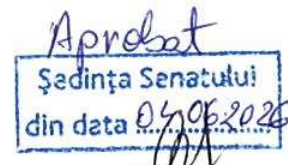 Aprobat
Ședința Senatului
din data 04.06.2026